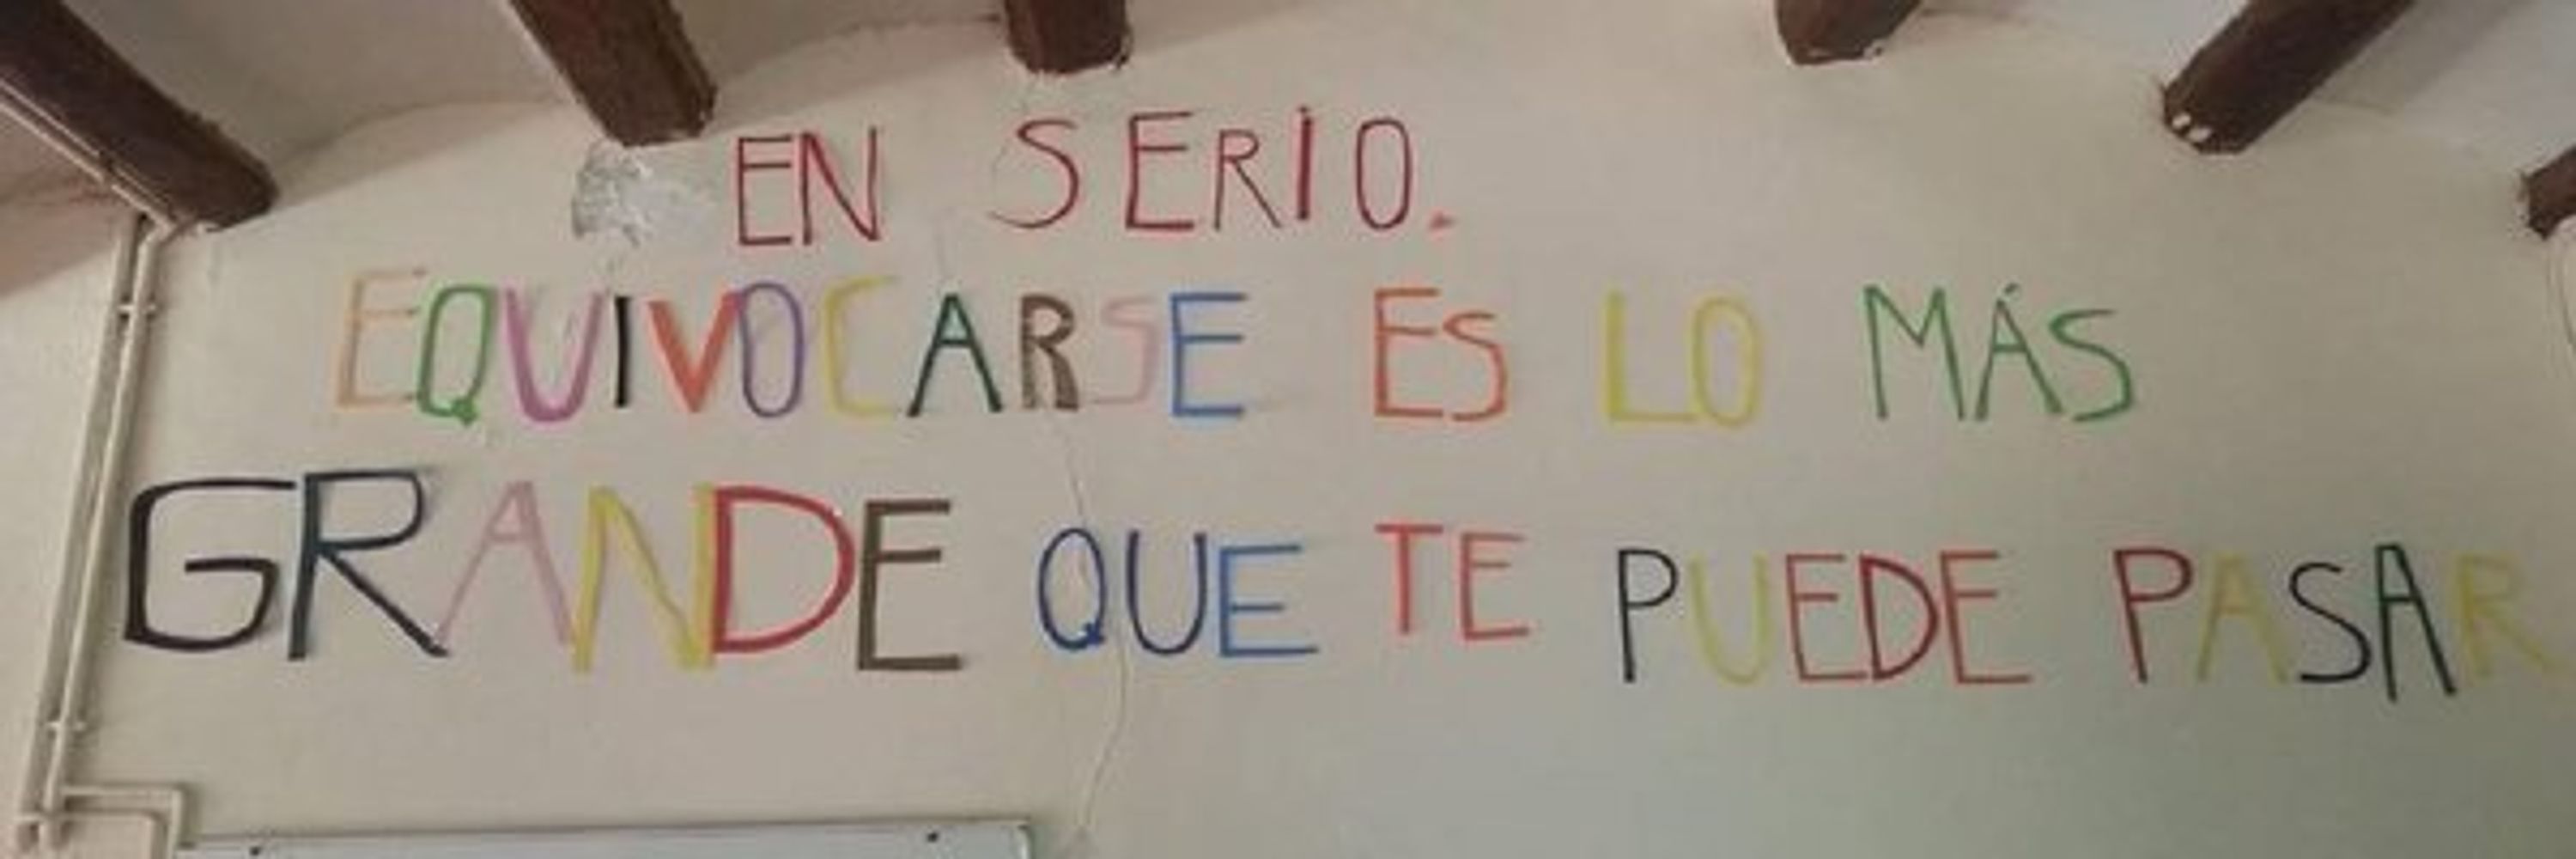 EN SERIO.
EQUIVOCARSE ES LO MÁS
GRANDE QUE TE PUEDE PASAR